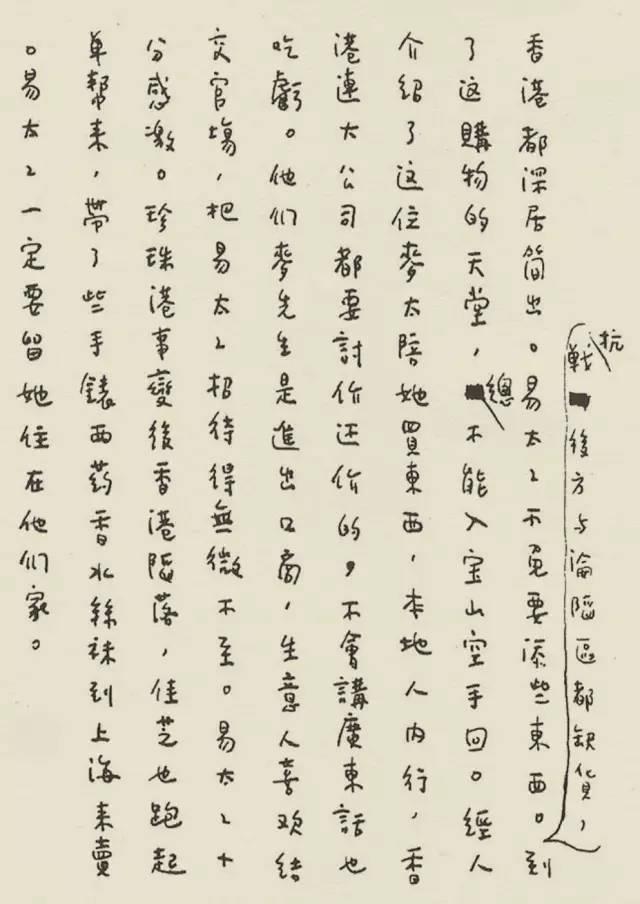 抗戰後方与淪陷區都缺貨，
香港都深居简出。易太々不免要添些東西。到
了这購物的天堂，總不能入宝山空手回。經人
介紹了这位麥太陪她買東西，本地人内行，香
港連大公司都要討价还价的，不會講廣東話也
吃虧。他们麥先生是進出口商，生意人喜欢结
交官場，把易太々招待得無微不至。易太々十
分感激。珍珠港事變後香港陷落，佳芝也跑起
单幫来，帶了些手錶西药香水絲袜到上海来賣
。易太々一定要留她住在他们家。